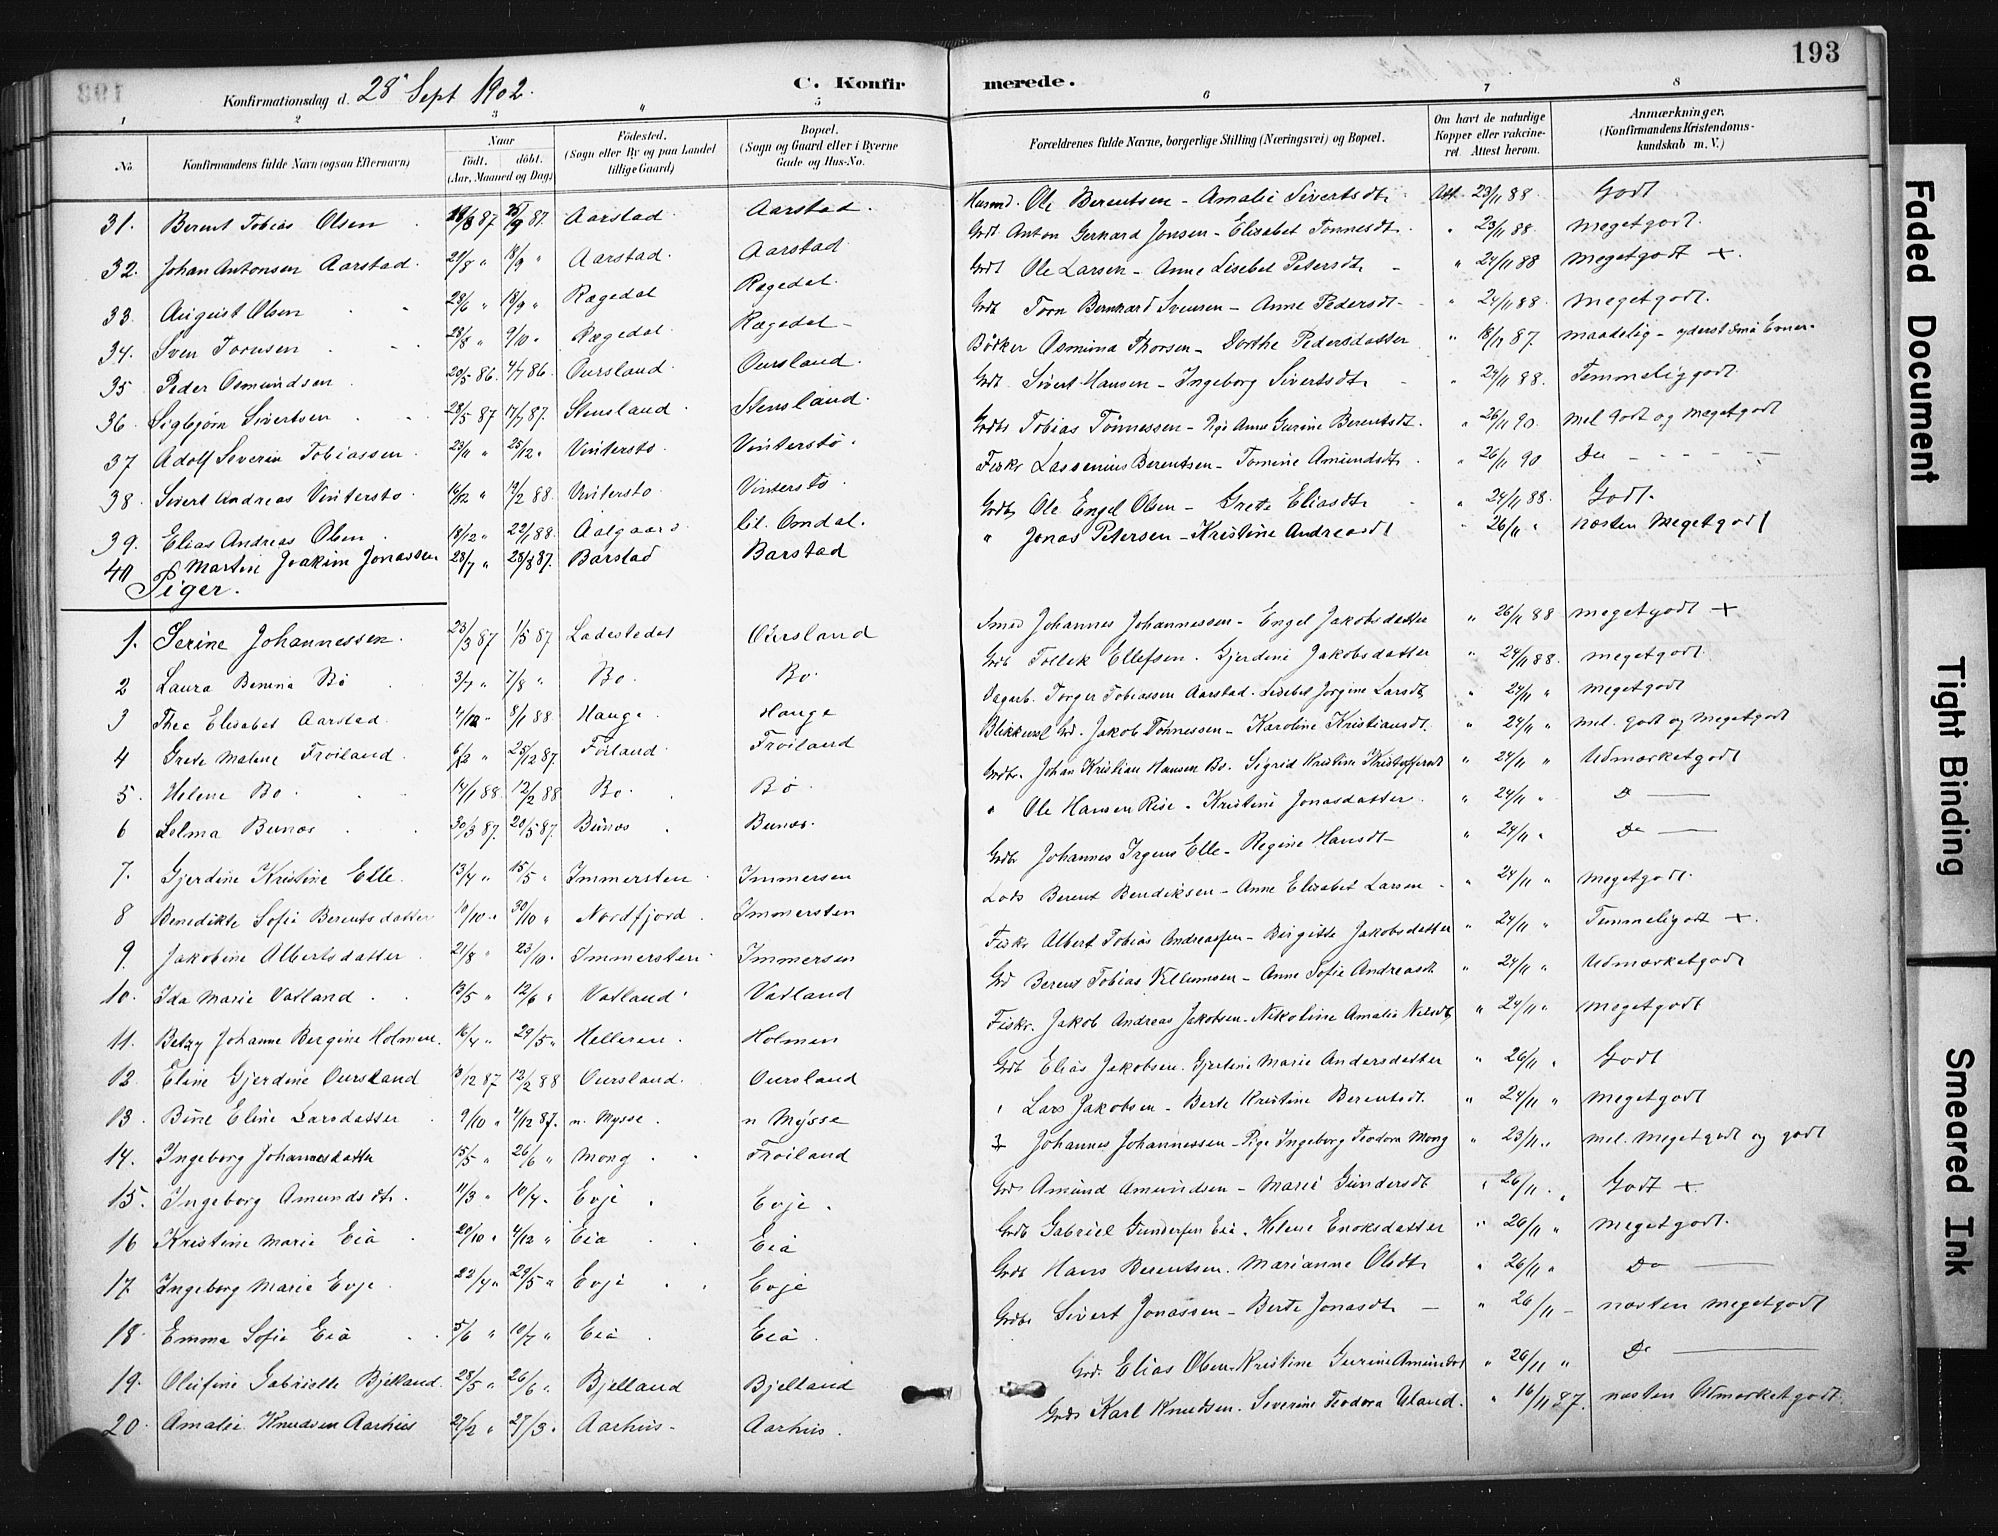 193
Konfirmationsdag d. 28 Sept 1902.
C. Konfirmerede.
1 2 3 4 5 6 7 8
No. Konfirmandens fulde Navn (ogsaa Efternavn) Naar født. døbt. (Aar, Maaned og Dag) Fødested. (Sogn eller By og paa Landet tillige Gaard) Bopæl. (Sogn og Gaard eller i Byerne Gade og Hus-No. Forældrenes fulde Navne, borgerlige Stilling (Næringsvei) og Bopæl. Om havt de naturlige Kopper eller vakcineret. Attest herom. Anmærkninger. (Konfirmandens Kristendomskundskab m. V.)
31. Berent Tobias Olsen 87 87. Aarstad. Aarstad. Ole Berentsen - Amalie Sivertsdt. Att. 23/11 88. Godt
32. Johan Antonsen Aarstad. 29/8 " 18/9 " Aarstad. Aarstad. Anton Gerhard Jonsen - Elisabet Tønnesdt. " 23/11 88. Megetgodt.
33. August Olsen 28/6 " 18/9 " Rægedal Rægedal. Ole Larsen - Anne Lisebet Petersdt. " 24/11 88 Megetgodt +.
34. Sven Tornsen 28/8 " 9/10 " Rægedal. Rægedal Torn Bernhard Svensen - Anne Pedersdt. " 24/11 88. Megetgodt.
35 Peder Osmundsen 20/5 86. 4/7 86. Oursland. Oursland. Bødker Osmund Thorsen - Dorthe Pedersdatter " 18/11 87 maadelig - yderst små Evner.
36. Sigbjørn Sivertsen 28/5 87 17/7 87. Stensland. Stensland. Sivert Hansen - Ingeborg Sivertsdt. " 24/11 88. Temmeliggodt
37 Adolf Severin Tobiassen. 23/11 " 25/12 " Vinterstø. Vinterstø. Tobias Tønnessen - Pige Anne Gurine Berentsdt. " 26/11 90. mel. Godt og Megetgodt
38. Sivert Andreas Vinterstø. 14/12 " 19/2 88. Vinterstø Vinterstø Fisker Lassenius Berentsen - Tomine Amundsdt. " 26/11 90 Do
39. Elias Andreas Olsen. 18/12 " 22/1 88. Aalgaard. lit. Omdal. Ole Engel Olsen - Grete Eliasdt. " 24/11 88. Godt.
40 Martin Joakim Jonassen 28/7 " 28/8 87. Barstad Barstad " Jonas Petersen - Kristine Andreasdt " 26/11 " næsten Megetgodt
Piger.
1. Serine Johannessen. 23/3 87 1/5 87 Ladestedet Oursland Smed Johannes Johannessen - Engel Jakobsdatter " 26/11 88 Megetgodt +
2 Laura Benina Bø 3/7 " 7/8 " Bø. Bø. Tollek Ellefsen. Gjerdine Jakobsdatter " 24/11 88. Megetgodt.
3 Thea Elisabet Aarstad. 4/12 " 8/1 88. Hauge. Hauge Dagarb. Torger Tobiassen Aarstad. Lisebet Jorgine Larsdt. " 24/11 " Megetgodt
4 Grete Malene Frøiland. 6/12 " 25/12 87. Föiland. Frøiland Jakob Tønnessen - Karoline Kristiansdt. " 24/11 " mel. godt og Megetgodt
5. Helene Bø. 14/1 88. 12/2 88 Bø. Bø Grdbr. Johan Kristian Hansen Bø. Sigrid Kristine " 24/11 " Udmærketgodt
6 Selma Bunæs 30/3 87. 20/5 87. Bunæs Bunæs. " Ole Hansen Rise - Kristine Jonasdatter. " 24/11 " Do
7. Gjerdine Kristine Elle. 13/4 " 15/5 " Immersten Immersen Johannes Irgens Elle - Regine Hansdt. " 24/11 " Do
8 Benedikte Sofie Berentsdatter 19/10 " 30/10 " Nordfjord. Immersten Lods Berent Bendiksen - Anne Elisabet Larsen " 24/11 " Megetgodt.
9. Jakobine Albertsdatter 21/8 " 23/10. Immersten. Immersen Fisker Albert Tobias Andreassen - Birgitte Jakobsdatter " 24/11 " Temmeligodt +.
10. Ida Marie Vatland. 13/5 " 12/6 " Vatland. Vatland Berent Tobias Villumsen - Anne Sofie Andreasdt " 24/11 " Udmærketgodt
11. Betzy Johanne Bergine Holmen. 16/4 " 29/5 " Helleren. Holmen Fiskr. Jakob Andreas Jakobsen. Nikoline Amalie Nilsdt " 24/11 " Megetgodt
12 Eline Gjerdine Oursland 9/12 87 12/2 88 Oursland. Oursland Grdb Elias Jakobsen. Gjertine Marie Andersdatter " 26/11 " Godt
13. Bine Eline Larsdatter 9/10 " 4/12 87. n. Mysse. n Mysse " Lars Jakobsen - Berte Kristine Berentsdt. " 24/11 " Megetgodt
14. Ingeborg Johannesdatter 15/5 " 26/6 " Mong. Frøiland Johannes Johannessen - Pige Ingeborg Teodora Mong " 23/11 " mel. megetgodt og godt
15. Ingeborg Amundsdt. 11/3 " 10/4. Evje. Evje. Amund Amundsen - Marie Gundersdt " 26/11 " Godt +
16 Kristine Marie Eiå 20/10 " 4/12 " Eiå Eiå Grdb Gabriel Gundersen Eiå. Helene Enoksdatter " 26/11 " Megetgodt.
17. Ingeborg Marie Evje. 22/4 " 29/5 " Evje Evje Grdb Hans Berentsen. Marianne Olsdt. " 26/11 " Do
18. Emma Sofie Eiå 5/6 " 10/7 " Eiå. Eiå. Sivert Jonassen - Berte Jonasdt. " 26/11 - næsten megetgodt
19. Olufine Gabrielle Bjelland. 28/5 " 26/6 " Bjelland Bjelland Elias Olsen. Kristine Gurine Amundsdt " 26/11 " Do
20. Amalie Knudsen Aarhus 27/2 " 27/3 " Aarhus. Aarhus. Karl Knudsen. Severine Teodora Uland. " 16/11 87. næsten Udmærketgodt.
Faded Document
Tight Binding
Smeared Ink